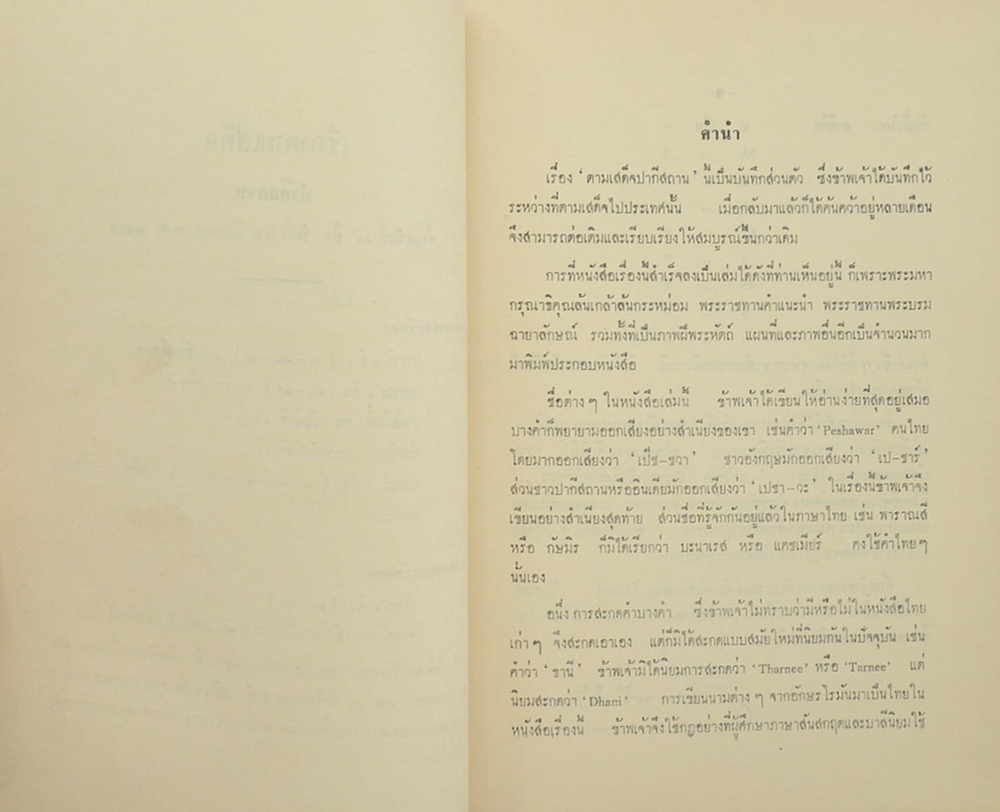 คำนำ
เรื่อง ‘ตามเสด็จปากีสถาน’ นี้เป็นบันทึกส่วนตัว ซึ่งข้าพเจ้าได้บันทึกไว้
ระหว่างที่ตามเสด็จไปประเทศนั้น เมื่อกลับมาแล้วก็ได้ค้นคว้าอยู่หลายเดือน
จึงสามารถต่อเติมและเรียบเรียงให้สมบูรณ์ขึ้นกว่าเดิม
การที่หนังสือเรื่องนี้สำเร็จลงเป็นเล่มได้ดังที่ท่านเห็นอยู่นี้ ก็เพราะพระมหา
กรุณาธิคุณล้นเกล้าล้นกระหม่อม พระราชทานคำแนะนำ พระราชทานพระบรม
ฉายาลักษณ์ รวมทั้งที่เป็นภาพฝีพระหัตถ์ แผนที่และภาพอื่นอีกเป็นจำนวนมาก
มาพิมพ์ประกอบหนังสือ
ชื่อต่าง ๆ ในหนังสือเล่มนี้ ข้าพเจ้าได้เขียนให้อ่านง่ายที่สุดอยู่เสมอ
บางคำก็พยายามออกเสียงอย่างสำเนียงของเขา เช่นคำว่า ‘Peshawar’ คนไทย
โดยมากออกเสียงว่า ‘เป๊ช–ชวา’ ชาวอังกฤษมักออกเสียงว่า ‘เป-ชาร์’
ส่วนชาวปากีสถานหรืออินเดียมักออกเสียงว่า ‘เปชา–วะ’ ในเรื่องนี้ข้าพเจ้าจึง
เขียนอย่างสำเนียงสุดท้าย ส่วนชื่อที่รู้จักกันอยู่แล้วในภาษาไทย เช่น พาราณสี
หรือ กัษมิร ก็มิได้เรียกว่า บะนาเรส หรือ แคชเมียร์ คงใช้คำไทยๆ
นั้นเอง
อนึ่ง การสะกดคำบางคำ ซึ่งข้าพเจ้าไม่ทราบว่ามีหรือไม่ในหนังสือไทย
เก่า ๆ จึงสะกดเอาเอง แต่ก็มิได้สะกดแบบสมัยใหม่ที่นิยมกันในปัจจุบัน เช่น
คำว่า ‘ธานี’ ข้าพเจ้ามิได้นิยมการสะกดว่า ‘Tharnee’ หรือ ‘Tarnee’ แต่
นิยมสะกดว่า ‘Dhani’ การเขียนนามต่าง ๆ จากอักษรโรมันมาเป็นไทยใน
หนังสือเรื่องนี้ ข้าพเจ้าจึงใช้กฎอย่างที่ผู้ศึกษาภาษาสันสกฤตและบาลีนิยมใช้